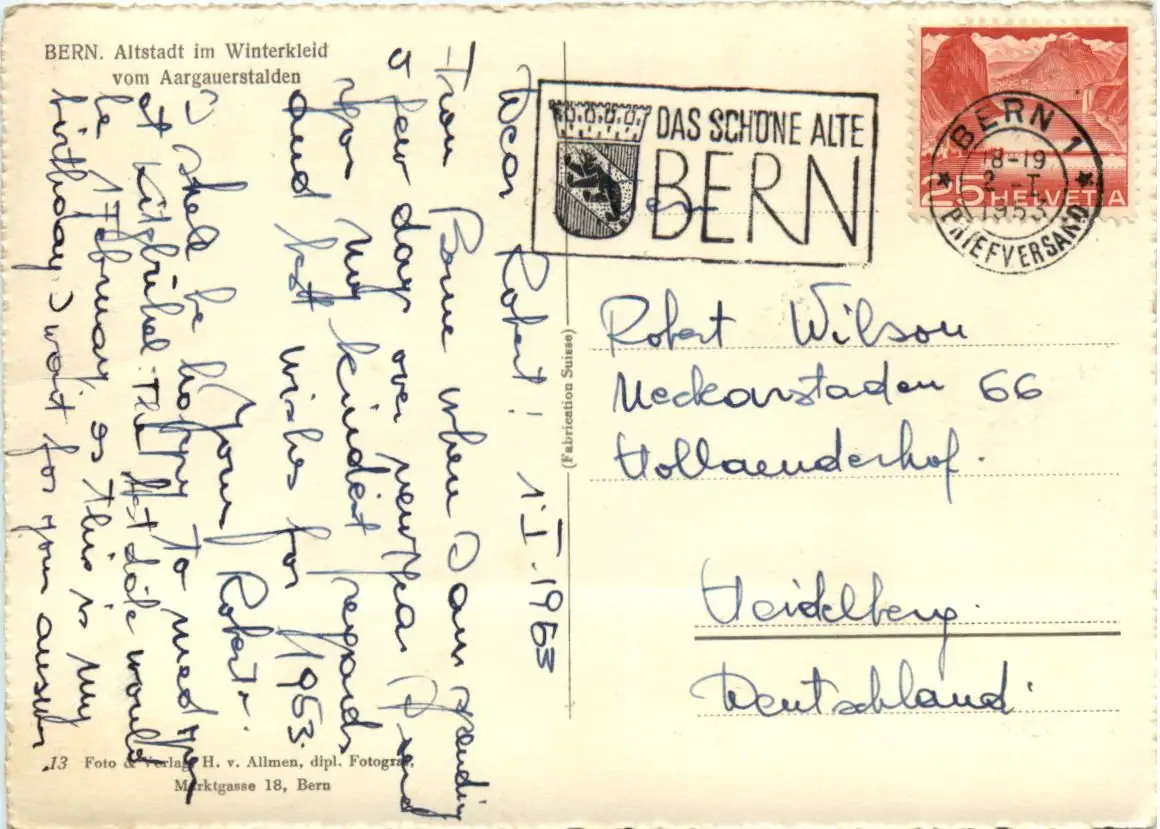 BERN. Altstadt im Winterkleid
vom Aargauerstalden
Dear Robert! 1.I.1953
From Berne where I am spending
a few days over newyear I send
you my kindest regards
and best wishes for 1953.
Your Robert.
I shall be happy to meet you
at Kitzbühel. The best date would
be 17 february, as this is my
birthday. I wait for your answer.
13 Foto & Verlag H. v. Allmen, dipl. Fotograf,
Marktgasse 18, Bern
(Fabrication Suisse)
DAS SCHÖNE ALTE
BERN
BERN 1
18-19
2.-I
1953
BRIEFVERSAND
25 HELVETIA
Robert Wilson
Neckarstaden 66
Hollaenderhof.
Heidelberg.
Deutschland